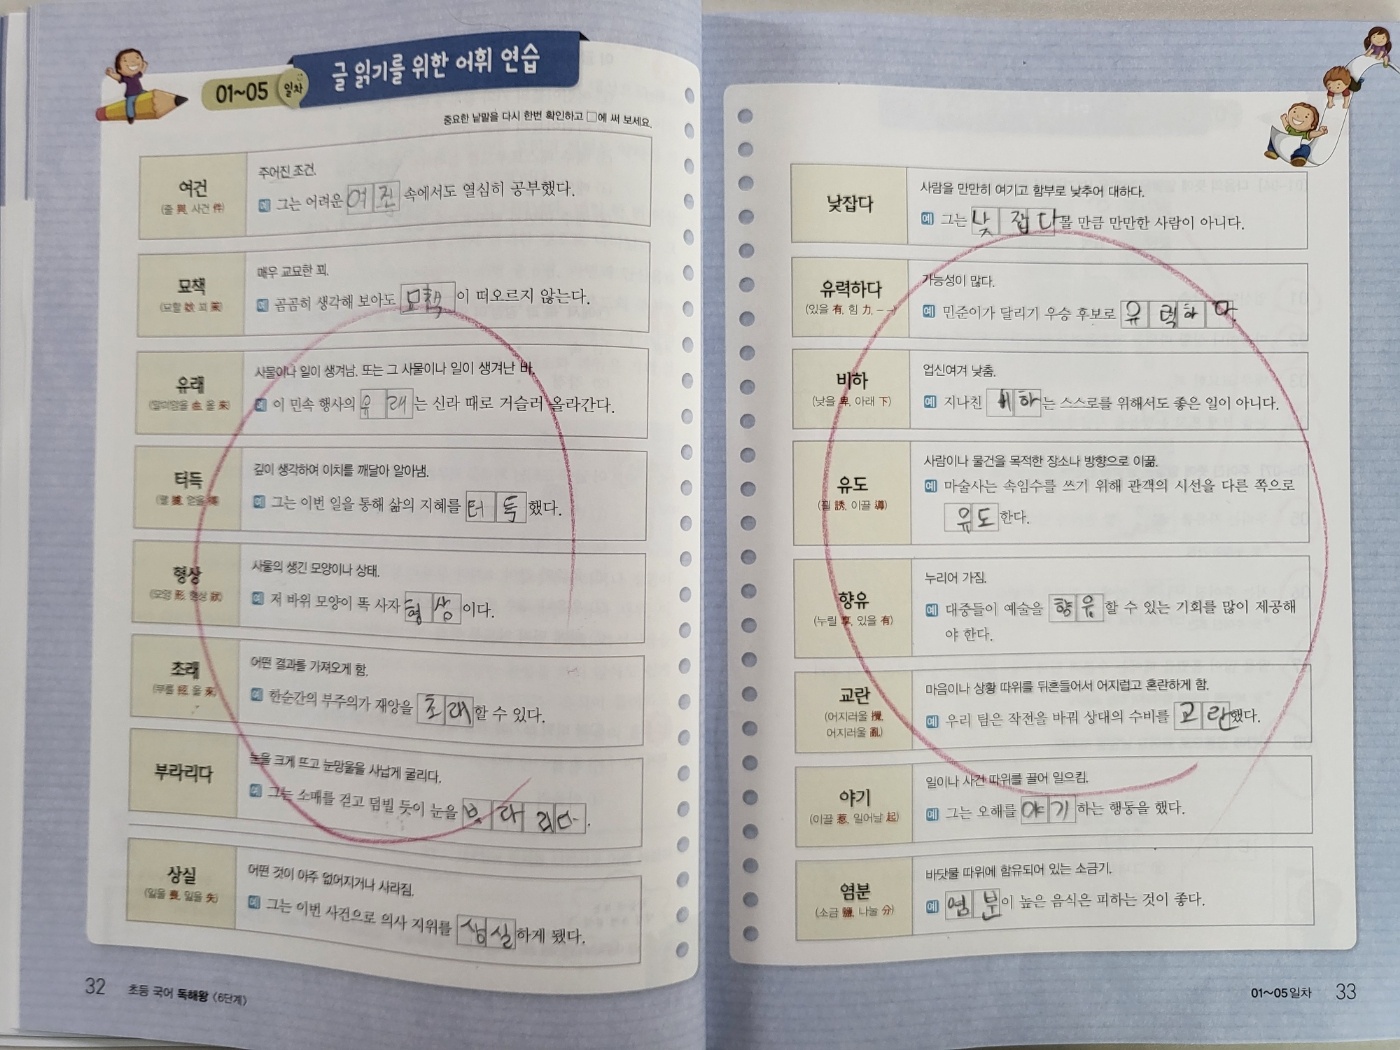 01~05 일차
글 읽기를 위한 어휘 연습
중요한 낱말을 다시 한번 확인하고 □에 써 보세요.
여건
(줄 與, 사건 件)
주어진 조건.
예 그는 어려운 여건 속에서도 열심히 공부했다.
묘책
(묘할 妙, 꾀 策)
매우 교묘한 꾀.
예 곰곰히 생각해 보아도 묘책이 떠오르지 않는다.
유래
(말미암을 由, 올 來)
사물이나 일이 생겨남. 또는 그 사물이나 일이 생겨난 바.
예 이 민속 행사의 유래는 신라 때로 거슬러 올라간다.
터득
(펼 攄, 얻을 得)
깊이 생각하여 이치를 깨달아 알아냄.
예 그는 이번 일을 통해 삶의 지혜를 터득했다.
형상
(모양 形, 형상 狀)
사물의 생긴 모양이나 상태.
예 저 바위 모양이 똑 사자 형상이다.
초래
(부를 招, 올 來)
어떤 결과를 가져오게 함.
예 한순간의 부주의가 재앙을 초래할 수 있다.
부라리다
눈을 크게 뜨고 눈망울을 사납게 굴리다.
예 그는 소매를 걷고 덤빌 듯이 눈을 부라리다.
상실
(잃을 喪, 잃을 失)
어떤 것이 아주 없어지거나 사라짐.
예 그는 이번 사건으로 의사 지위를 상실하게 됐다.
32 초등 국어 독해왕 〈6단계〉
낮잡다
사람을 만만히 여기고 함부로 낮추어 대하다.
예 그는 낮잡다볼 만큼 만만한 사람이 아니다.
유력하다
(있을 有, 힘 力, ――)
가능성이 많다.
예 민준이가 달리기 우승 후보로 유력하다.
비하
(낮을 卑, 아래 下)
업신여겨 낮춤.
예 지나친 비하는 스스로를 위해서도 좋은 일이 아니다.
유도
(꾈 誘, 이끌 導)
사람이나 물건을 목적한 장소나 방향으로 이끎.
예 마술사는 속임수를 쓰기 위해 관객의 시선을 다른 쪽으로
유도한다.
향유
(누릴 享, 있을 有)
누리어 가짐.
예 대중들이 예술을 향유할 수 있는 기회를 많이 제공해
야 한다.
교란
(어지러울 攪,
어지러울 亂)
마음이나 상황 따위를 뒤흔들어서 어지럽고 혼란하게 함.
예 우리 팀은 작전을 바꿔 상대의 수비를 교란했다.
야기
(이끌 惹, 일어날 起)
일이나 사건 따위를 끌어 일으킴.
예 그는 오해를 야기하는 행동을 했다.
염분
(소금 鹽, 나눌 分)
바닷물 따위에 함유되어 있는 소금기.
예 염분이 높은 음식은 피하는 것이 좋다.
01~05일차 33